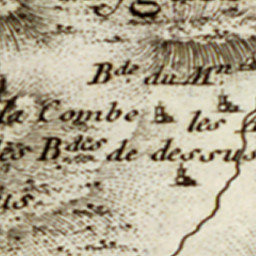 Bde du Mn
la Combe
les
ès Bdes de dessus
us